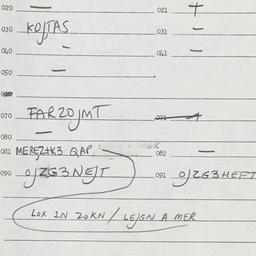 020 — 021 +
030 KOJTAS 031 —
040 — 041 —
050 —
070 FARZOJMT
080 —
081 MEREZTK3 QAP 082 —
090 OJZG3NEJT 091 OJZG3HEFT
LOX IN ZOKN / LEJGN A MER